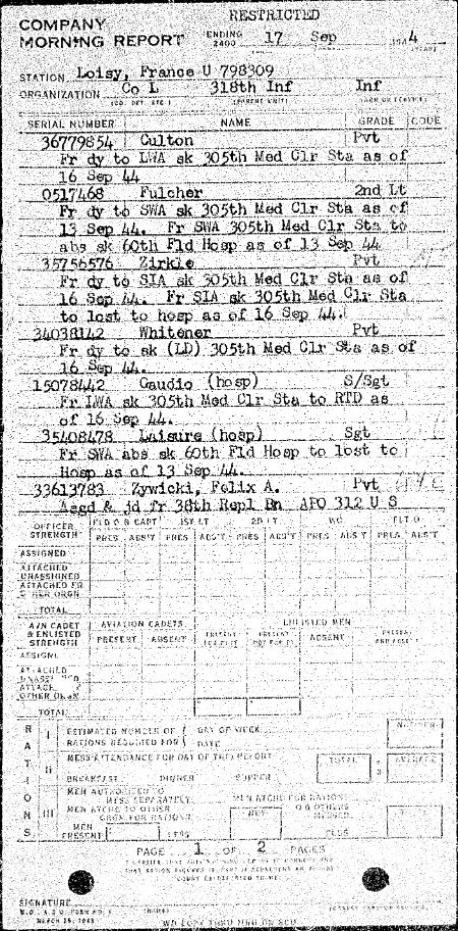 RESTRICTED
COMPANY
MORNING REPORT ENDING 2400 17 Sep 1944
STATION Loisy, France U 798309
ORGANIZATION Co L 318th Inf Inf
SERIAL NUMBER NAME GRADE CODE
36779854 Culton Pvt
Fr dy to LWA sk 305th Med Clr Sta as of
16 Sep 44
0517468 Fulcher 2nd Lt
Fr dy to SWA sk 305th Med Clr Sta as of
13 Sep 44. Fr SWA 305th Med Clr Sta to
abs sk 60th Fld Hosp as of 13 Sep 44
35756576 Zirkle Pvt
Fr dy to SIA sk 305th Med Clr Sta as of
16 Sep 44. Fr SIA sk 305th Med Clr Sta
to lost to hosp as of 16 Sep 44.
34038142 Whitener Pvt
Fr dy to sk (LD) 305th Med Clr Sta as of
16 Sep 44.
15078442 Gaudio (hosp) S/Sgt
Fr LWA sk 305th Med Clr Sta to RTD as
of 16 Sep 44.
35408478 Laisure (hosp) Sgt
Fr SWA abs sk 60th Fld Hosp to lost to
Hosp as of 13 Sep 44.
33613783 Zywicki, Felix A. Pvt
Asgd & jd fr 38th Repl Bn APO 312 U S
OFFICER STRENGTH FLD O & CAPT 1ST LT 2D LT WO FLT O
PRES ABS'T PRES ABS'T PRES ABS'T PRES ABS'T PRES ABS'T
ASSIGNED
ATTACHED UNASSIGNED
ATTACHED FR OTHER ORGN
TOTAL
AVN CADET & ENLISTED STRENGTH AVIATION CADETS ENLISTED MEN
PRESENT ABSENT PRESENT FOR DUTY PRESENT NOT FOR DY ABSENT PRESENT AND ABSENT
TOTAL
RATIONS
I ESTIMATED NUMBER OF RATIONS REQUIRED FOR DAY OF WEEK DATE NUMBER
II MESS ATTENDANCE FOR DAY OF THIS REPORT TOTAL AVERAGE
BREAKFAST DINNER SUPPER
III MEN AUTHORIZED TO MESS SEPARATELY MEN ATCHD FOR RATIONS
MEN ATCHD TO OTHER ORGN FOR RATIONS
MEN PRESENT LESS PLUS
PAGE 1 OF 2 PAGES
SIGNATURE
MARCH 15, 1943